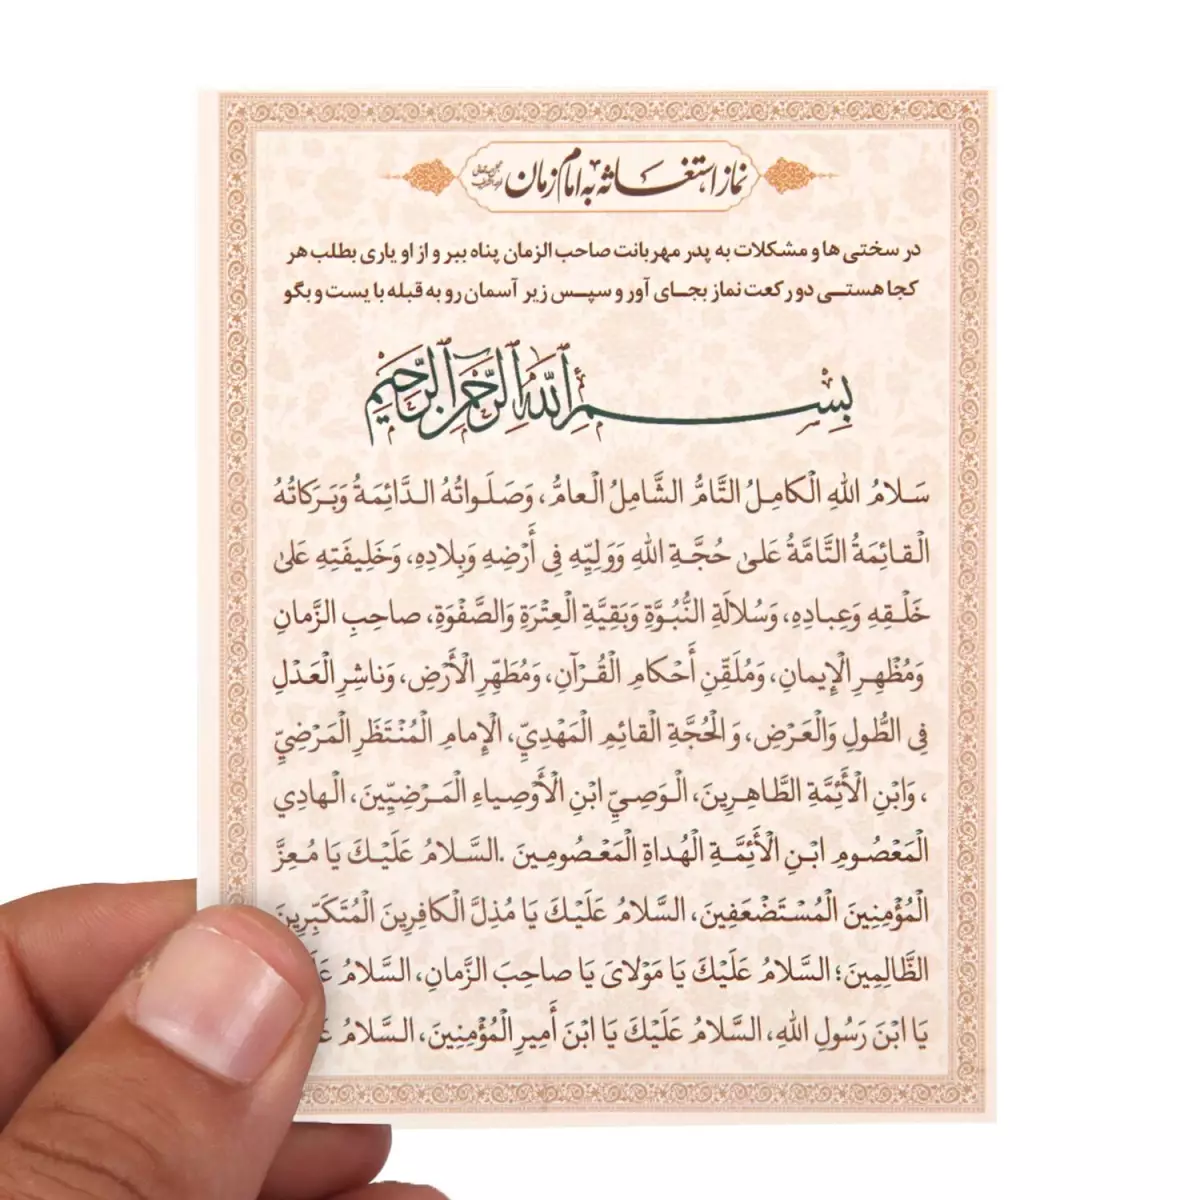 نماز استغاثه به امام زمان
در سختی ها و مشکلات به پدر مهربانت صاحب الزمان پناه ببر و از او یاری بطلب هر
کجا هستی دو رکعت نماز بجای آور و سپس زیر آسمان رو به قبله با یست و بگو
بِسْمِ اللهِ الرَّحْمنِ الرَّحیمِ
سَلامُ اللهِ الْکامِلُ التَّامُّ الشَّامِلُ الْعامُّ، وَصَلَواتُهُ الدَّائِمَةُ وَبَرَکاتُهُ
الْقائِمَةُ التَّامَّةُ عَلیٰ حُجَّةِ اللهِ وَوَلِیِّهِ فِی أَرْضِهِ وَبِلادِهِ، وَخَلِیفَتِهِ عَلیٰ
خَلْقِهِ وَعِبادِهِ، وَسُلالَةِ النُّبُوَّةِ وَبَقِیَّةِ الْعِتْرَةِ وَالصَّفْوَةِ، صاحِبِ الزَّمانِ
وَمُظْهِرِ الْإِیمانِ، وَمُلَقِّنِ أَحْکامِ الْقُرْآنِ، وَمُطَهِّرِ الْأَرْضِ، وَناشِرِ الْعَدْلِ
فِی الطُّولِ وَالْعَرْضِ، وَ الْحُجَّةِ الْقائِمِ الْمَهْدِيِّ، الْإِمامِ الْمُنْتَظَرِ الْمَرْضِيِّ
، وَابْنِ الْأَئِمَّةِ الطَّاهِرِینَ، الْوَصِيِّ ابْنِ الْأَوْصِیاءِ الْمَرْضِیِّینَ، الْهادِي
الْمَعْصُومِ ابْنِ الْأَئِمَّةِ الْهُداةِ الْمَعْصُومِینَ .السَّلامُ عَلَیْكَ یَا مُعِزَّ
الْمُؤْمِنِینَ الْمُسْتَضْعَفِینَ، السَّلامُ عَلَیْكَ یَا مُذِلَّ الْکافِرِینَ الْمُتَکَبِّرِینَ
الظَّالِمِینَ؛ السَّلامُ عَلَیْكَ یَا مَوْلایَ یَا صاحِبَ الزَّمانِ، السَّلامُ
یَا ابْنَ رَسُولِ اللهِ، السَّلامُ عَلَیْكَ یَا ابْنَ أَمِیرِ الْمُؤْمِنِینَ، السَّلامُ